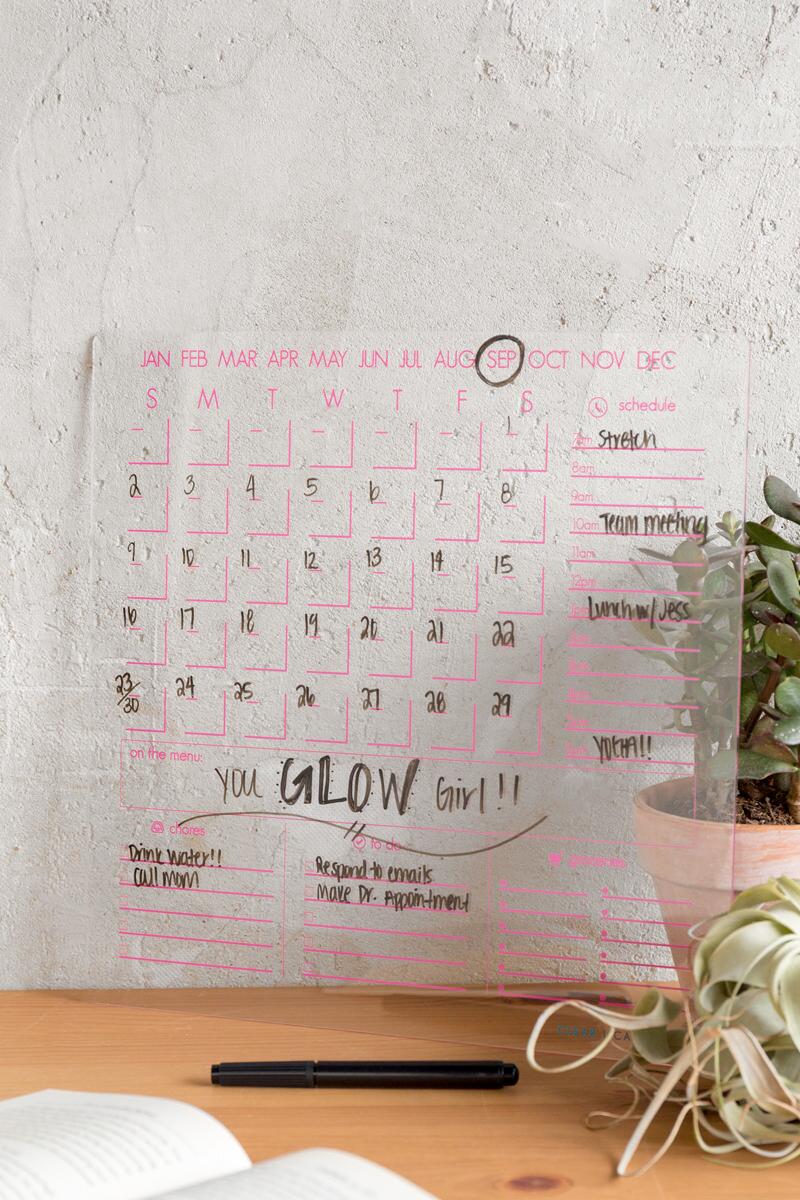 JAN FEB MAR APR MAY JUN JUL AUG SEP OCT NOV DEC
S M T W T F S
schedule
1
2 3 4 5 6 7 8
9 10 11 12 13 14 15
16 17 18 19 20 21 22
23/30 24 25 26 27 28 29
7am Stretch
8am
9am
10am Team meeting
11am
12pm
1pm Lunch w/ Jess
YOGA!!
on the menu:
YOU GLOW Girl!!
chores
Drink Water!!
Call Mom
to do
Respond to emails
Make Dr. Appointment
groceries